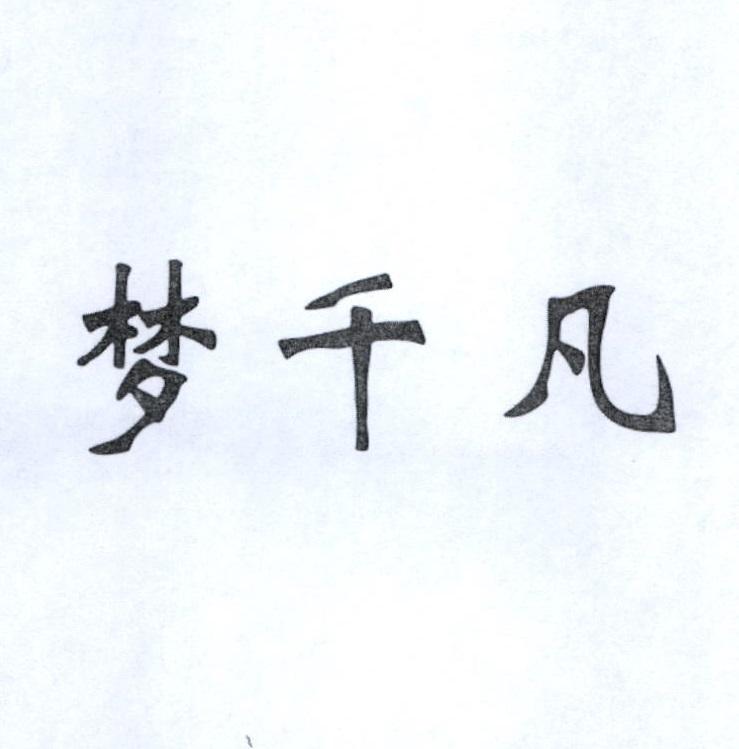 梦千凡